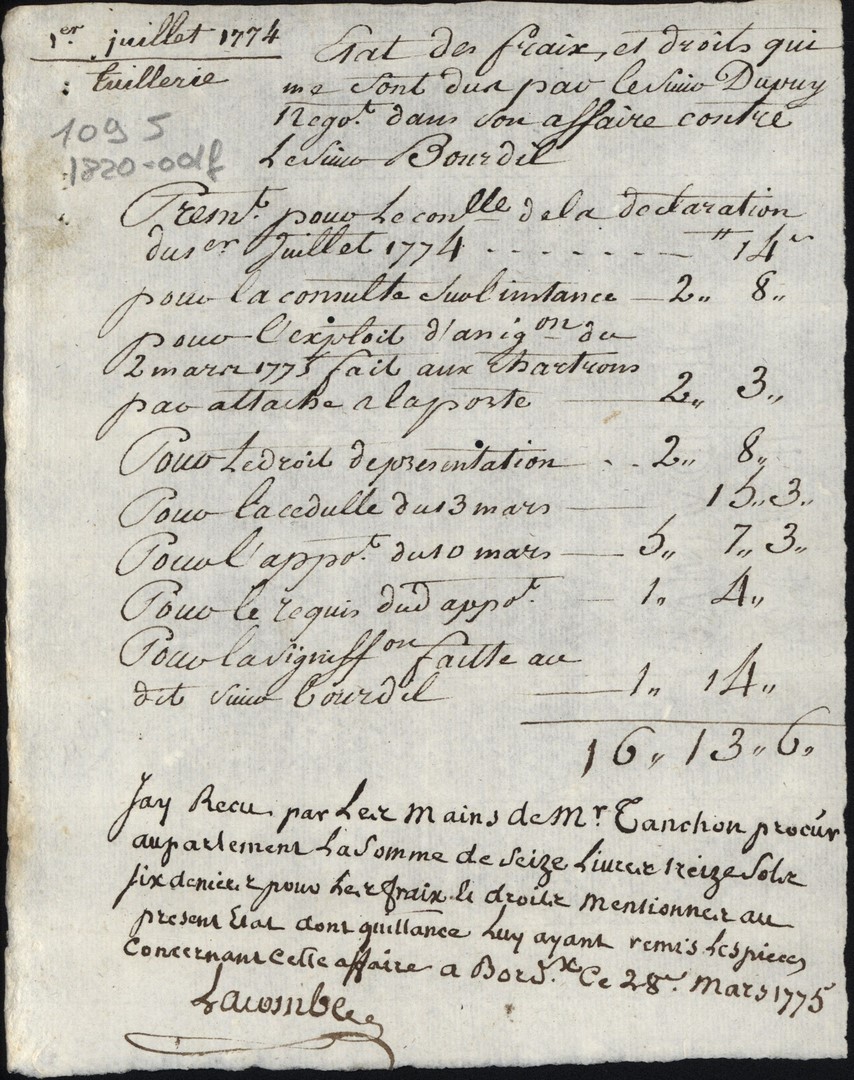 1er juillet 1774
: tuillerie
1095
1820-001f
Etat des fraix, et droits qui
me sont dus par le sieur Dupuy
Negot. dans son affaire contre
Le sieur Bourdil
Premt. pour Le conlle de la declaration
du 1er Juillet 1774 - - - - - - - " 14s
pour la consulte sur l'instance — 2" 8"
pour l'exploit d'assigon du
2 mars 1775 fait aux chartrons
par attache a la porte — 2" 3"
Pour Le droit de presentation - - 2" 8"
Pour la cedulle du 13 mars — 15" 3"
Pour l'appot. du 10 mars — 5" 7" 3"
Pour le requis dud appot. — 1" 4"
Pour la signiffon faitte au
dit sieur bourdil — 1" 14"
16" 13" 6"
Jay Recu par Les mains de Mr Tanchon procur
au parlement La somme de seize Livres treize sols
six deniers pour Les fraix & droits mentionnes au
present Etat dont quittance Luy ayant remis Les pieces
Concernant Cette affaire a Bordx Ce 28e. Mars 1775
Lacombe